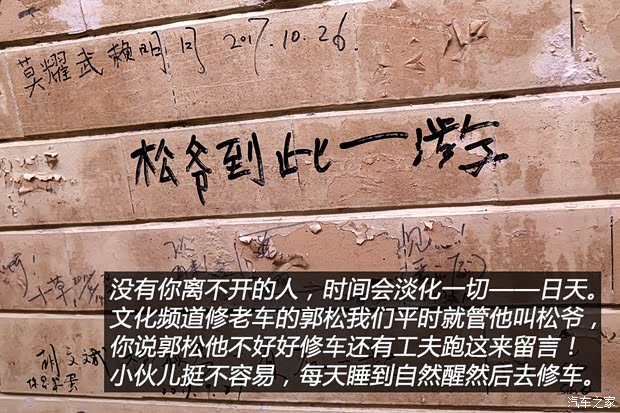 莫耀武 赖明月 2017.10.26.
松爷到此一游
没有你离不开的人，时间会淡化一切——日天。
文化频道修老车的郭松我们平时就管他叫松爷，
你说郭松他不好好修车还有工夫跑这来留言！
小伙儿挺不容易，每天睡到自然醒然后去修车。
汽车之家